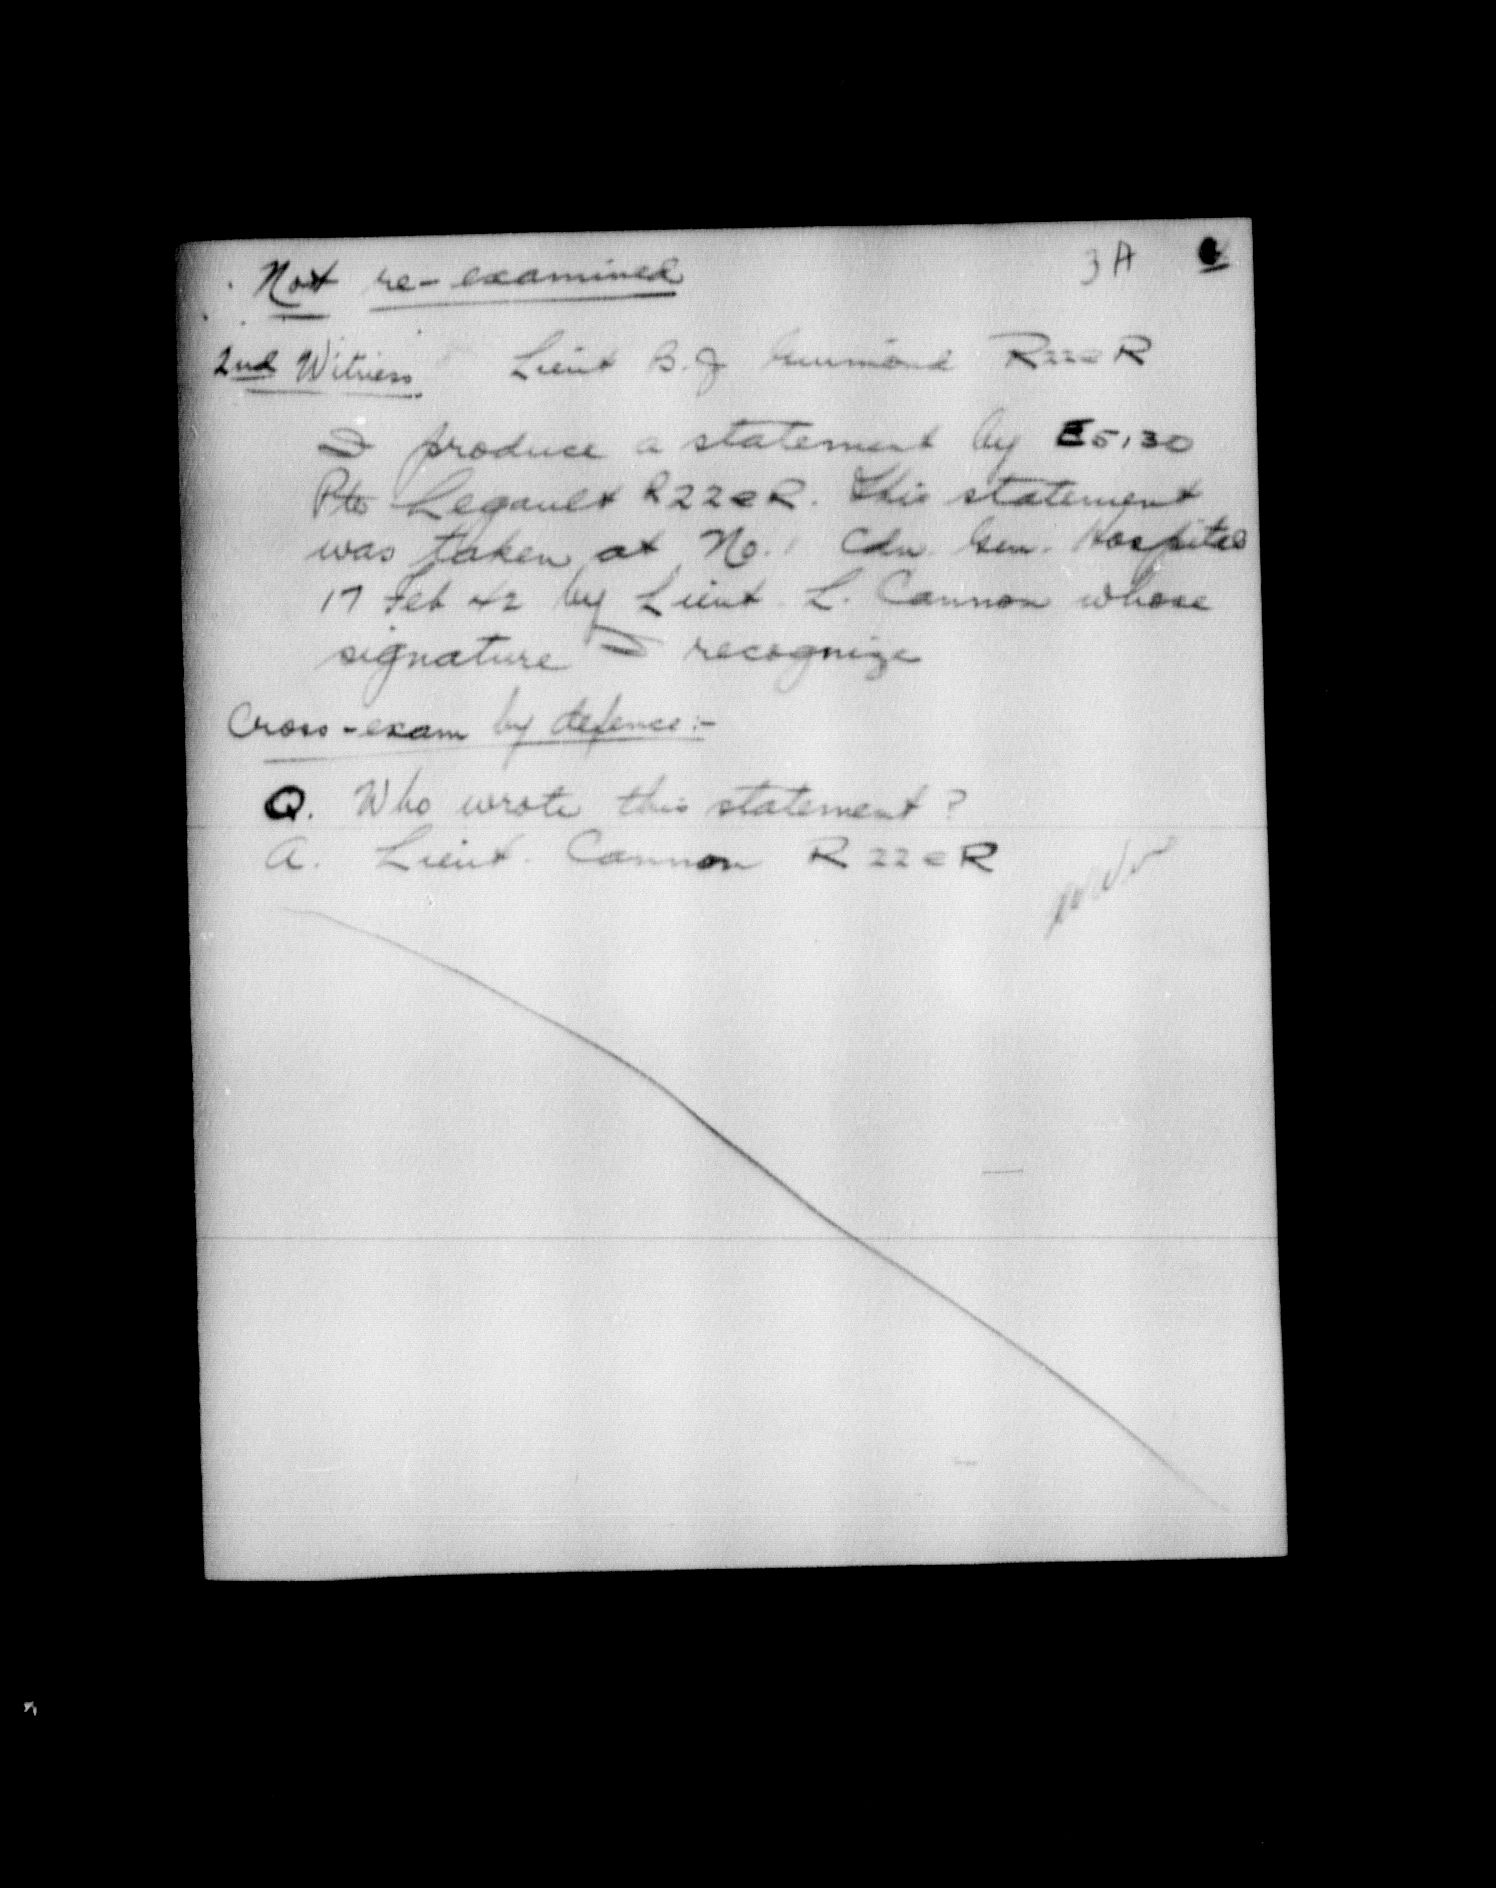 Not re-examined 3A
2nd Witness Lieut B.J R22eR
I produce a statement by E5130
Pte Legault R22eR. This statement
was taken at No. 1 Cdn. Gen. Hospital
17 Feb 42 by Lieut. L. Cannon whose
signature I recognize
Cross-exam by defence:-
Q. Who wrote this statement?
A. Lieut. Cannon R22eR